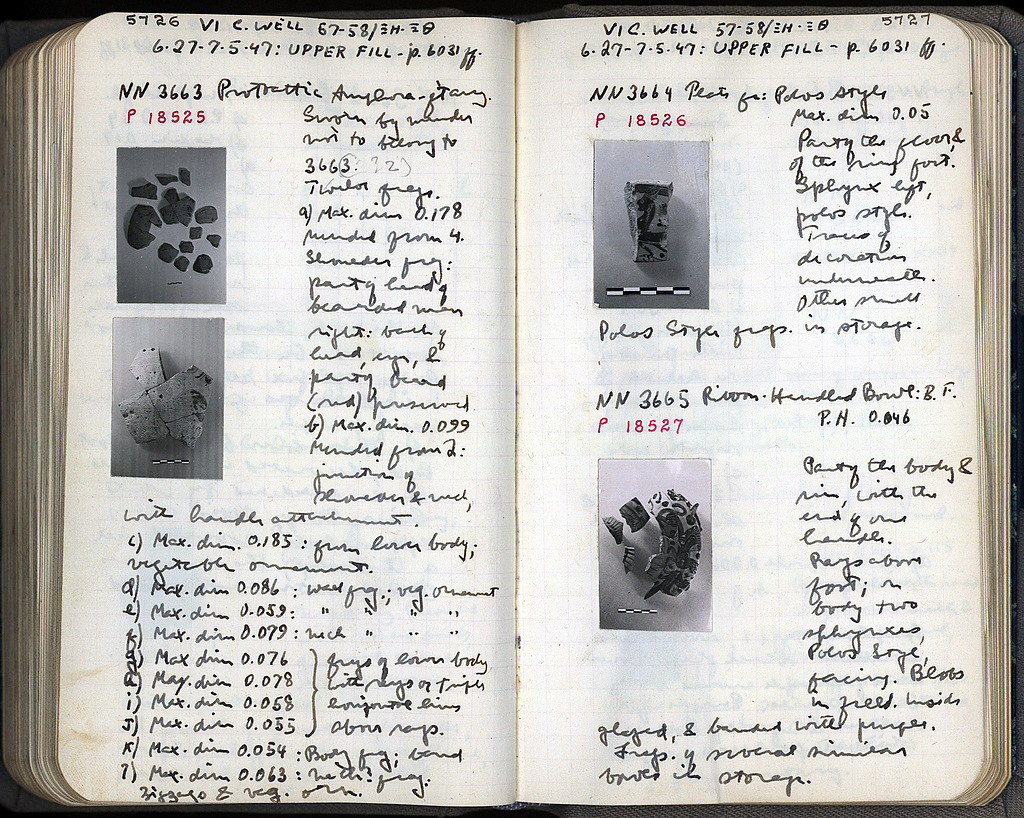 5726 VI C. WELL 57-58/ΞΗ-ΞΘ
6.27-7.5.47: UPPER FILL - p. 6031 ff.
NN 3663 Protoattic Amphora-frags.
P 18525
Sworn by mender
not to belong to
3663
Twelve frags.
a) Max. dim 0.178
Mended from 4.
Shoulder frag:
part of head of
bearded man
right: back of
head, eye, &
part of beard
(red) preserved.
b) Max. dim. 0.099
Mended from 2:
junction of
shoulder & neck,
with handle attachment.
c) Max. dim. 0.185: from lower body;
vegetable ornament.
d) Max. dim 0.086: wall frag.; veg. ornament
e) Max. dim 0.059: " " " "
f) Max. dim 0.079: neck " " "
g) Max dim 0.076 } frags of lower body,
h) Max. dim 0.078 with rays or triple
i) Max. dim 0.058 horizontal lines
J) Max. dim 0.055 above rays.
K) Max. dim 0.054: Body frag; band
l) Max. dim 0.063: neck? frag:
zigzags & veg. orn.
VI C. WELL 57-58/ΞΗ-ΞΘ 5727
6.27-7.5.47: UPPER FILL - p. 6031 ff.
NN 3664 Plate fr: Polos Style
P 18526
Max. dim 0.05
Part of the floor &
of the ring foot.
Sphynx left,
polos style.
Traces of
decoration
underneath.
Other small
Polos Style frags. in storage.
NN 3665 Ribbon-Handled Bowl: B. F.
P 18527
P.H. 0.046
Part of the body &
rim, with the
end of one
handle.
Rays above
foot; on
body two
sphynxes,
Polos Style,
facing. Blobs
in field. Inside
glazed, & banded with purple.
Frags. of several similar
bowls in storage.